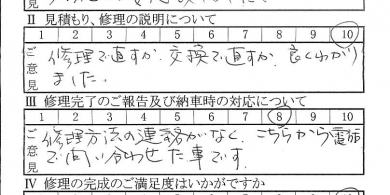 II 見積もり、修理の説明について
1 2 3 4 5 6 7 8 9 10
ご意見 修理で直すか、交換で直すか、良くわかり
ました。
III 修理完了のご報告及び納車時の対応について
1 2 3 4 5 6 7 8 9 10
ご意見 修理方法の連絡がなく、こちらから電話
で問い合わせた事です。
IV 修理の完成のご満足度はいかがですか